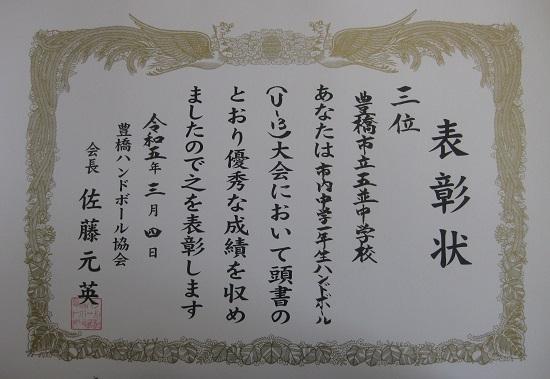 表彰状
三位
豊橋市立五並中学校
あなたは市内中学一年生ハンドボール
(U-13)大会において頭書の
とおり優秀な成績を収め
ましたので之を表彰します
令和五年三月四日
豊橋ハンドボール協会
会長 佐藤元英